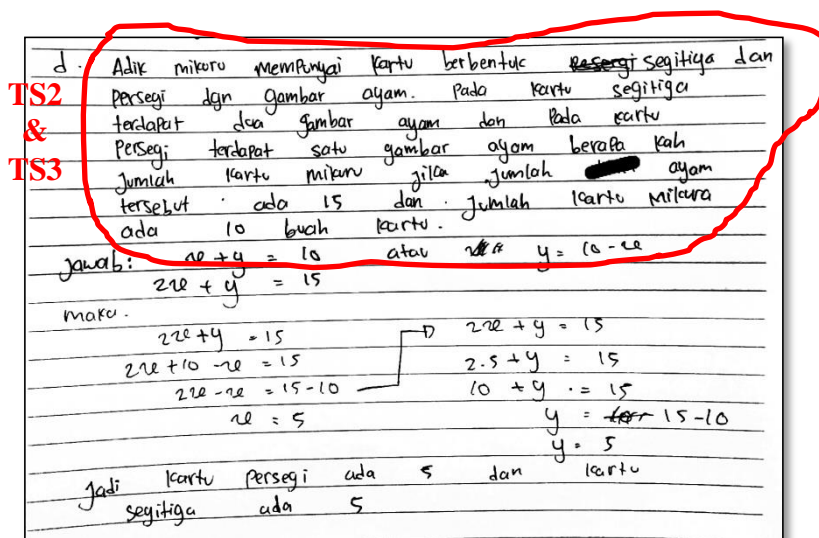 d. Adik mikoru mempunyai kartu berbentuk segitiga dan
TS2 persegi dgn gambar ayam. Pada kartu segitiga
& terdapat dua gambar ayam dan Pada kartu
TS3 Persegi terdapat satu gambar ayam berapa kah
Jumlah kartu mikuru jika jumlah ayam
tersebut ada 15 dan Jumlah kartu Mikura
ada 10 buah kartu.
Jawab: x + y = 10 atau y = 10 - x
2x + y = 15
maka.
2x + y = 15
2x + 10 - x = 15
2x - x = 15 - 10
x = 5
2x + y = 15
2.5 + y = 15
10 + y = 15
y = 15 - 10
y = 5
Jadi kartu persegi ada 5 dan kartu
segitiga ada 5